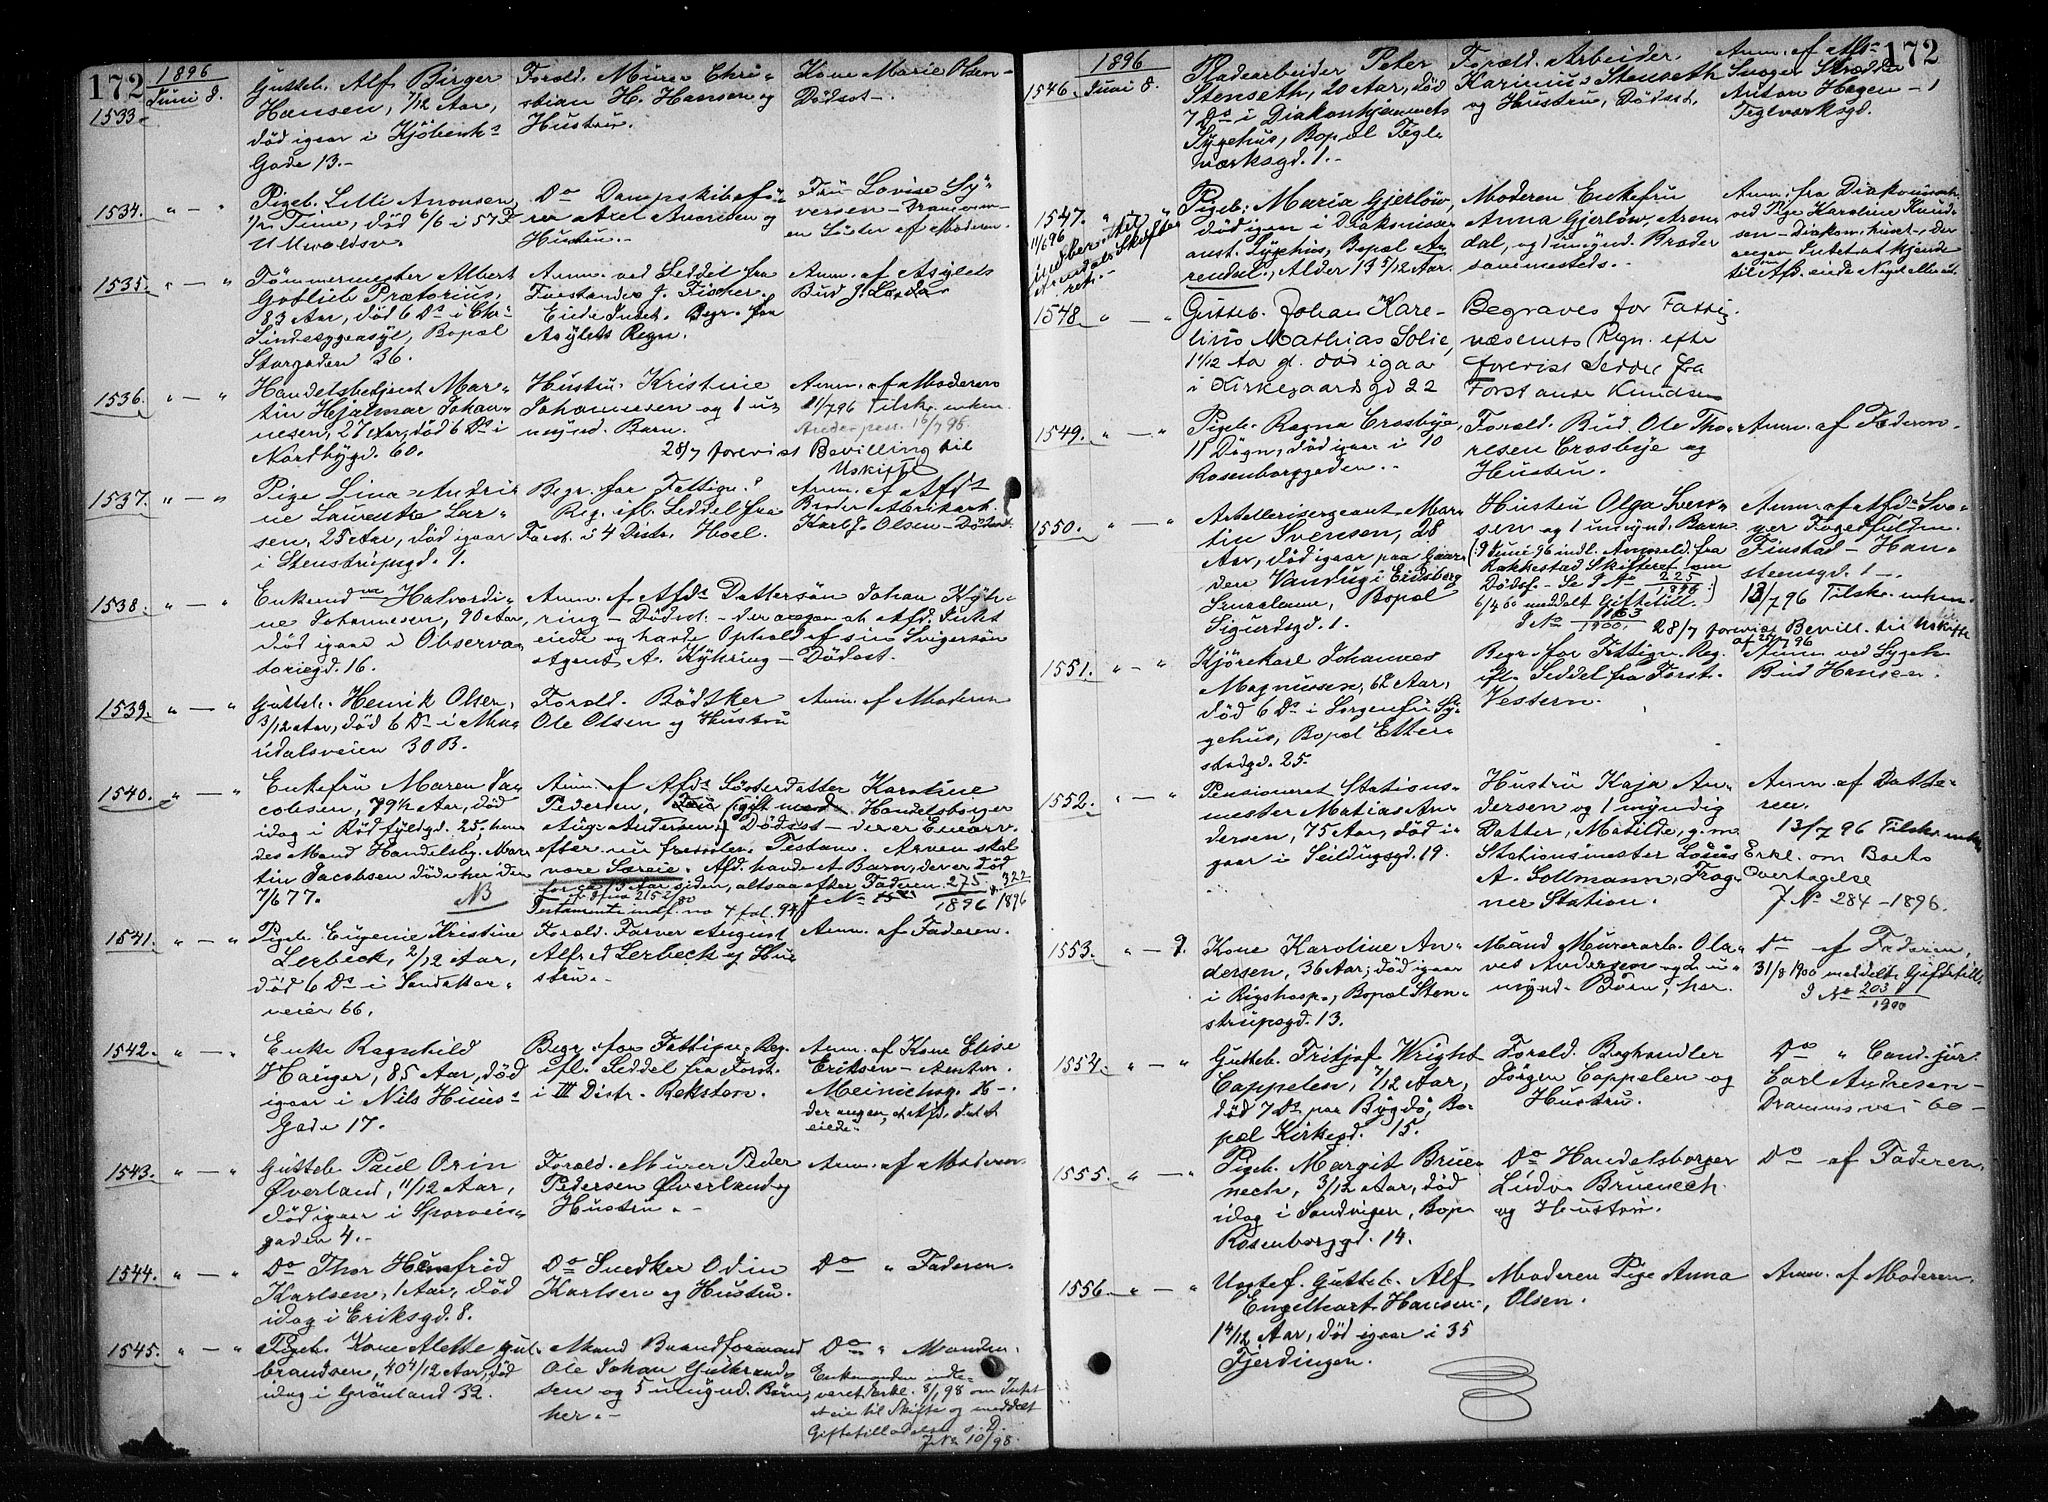 172
1896
Juni 8.
1533.
Gutteb. Alf Birger
Hansen, 7/12 Aar,
död igaar i Kjöbenh.s
Gade 13.-
Forald. Murer Chri-
stian H. Hansen og
Hustru.
Kone Marie Olsen-
Dödsat-.
1534. " — "
Pigeb. Lilli Aronsen,
1/2 Time, död 6/6 i 57 F
Ullevoldsv.
Do Dampskibsfö-
rer Axel Aronsen og
Hustru.-
Fru Lovise Sy-
versen - Drammen-
en Söster af Moderen.
1535. " — "
Tömmermester Albert
Gotlieb Prætorius,
83 Aar, död 6 Ds i Chr.
Sindssygeasyl, Bopæl
Storgaden 36.
Anm. ved Seddel fra
Forstander J. Fischer.
Eiede Intet. Begr. for
Asylets Regn.
Anm. af Asylets
Bud J. Larsen
1536. " — "
Handelsbetjent Mar-
tin Hjalmar Johan-
nesen, 27 Aar, död 6 Ds i
Nordbygd. 60.
Hustru Kristine
Johannesen og 1 u-
mynd. Barn.
Anm. af Moderen
11/7 96 Tilskr. enken.
Anderpen. 16/7 96.
28/7 forevist Bevilling til
Uskifte
1537. " — "
Pige Lina Andri-
ne Laurentse Lar-
sen, 25 Aar, död igaar
i Stenstrupsgd. 1.
Begr. for Fattigv.s
Reg. ifl. Seddel fra
Forst. i 4 Distr. Hoel.
Anm. af Afd.s
Broder
Karl J. Olsen - Dödsat.
1538. " — "
Enkemd.va Halvordi-
ne Johannesen, 90 Aar,
död igaar i Observa-
toriegd. 16.
Anm. af Afds Dattersön Johan Kyh-
ring - Dödsat. - der angav at Afd. Intet
eiede og havde Ophold af sin Svigersön
Agent A. Kyhring - Dödsat.
1539. " — "
Gutteb. Henrik Olsen,
3/12 Aar, död 6 Ds i Maa-
ridalsveien 30 B.
Forald. Bödtker
Ole Olsen og Hustru
Anm. af Moderen
1540. " — "
Enkefru Maren Ja-
cobsen, 79 1/2 Aar, död
idag i Rödfyldgd. 25; hen-
des Mand Handelsbg. Mar-
tin Jacobsen döde her den
7/6 77.
NB
Anm. af Afds Sösterdatter Karoline
Pedersen, (gift med Handelsborger
Aug. Andersen) Dödsat - der er Enearv.
efter nu fremlev. Testam. Arven skal
være Særeie. Afd. havde et Barn, der er död
for ca. 13 Aar siden, altsaa efter Faderen.
Testamente indf. no 7 fol. 94
J No 275/1896 & 322/1896
1541. " — "
Pigeb. Eugenie Kristine
Lerbeck, 2/12 Aar,
död 6 Ds i Sandaker-
veien 66.
Forald. Farver August
Alfred Lerbeck og Hu-
stru.-
Anm. af Faderen.
1542. " — "
Enke Ragnhild
Hauger, 85 Aar, död
igaar i Nils Huus's
Gade 17.
Begr. for Fattigv. Reg.
ifl. Seddel fra Forst.
i III Distr. Reksten.
Anm. af Kone Elise
Eriksen - Anton
Meinichsg. 16 -
der angav, at Afd. Intet
eiede.
1543. " — "
Gutteb. Paul Orin
Øverland, 11/12 Aar,
död igaar i Sporveis-
gaden 4.-
Forald. Murer Peder
Pedersen Øverland og
Hustru.-
Anm. af Moderen
1544. " — "
Do Thor Hunfrid
Karlsen, 1 Aar, död
idag i Eriksgd. 8.
Do Snedker Odin
Karlsen og Hustru.
Do " Faderen.
1545. " — "
Kone Alette Gul-
brandsen, 40 4/12 Aar, död
idag i Grönland 32.
Mand Brandformand
Ole Johan Gulbrand-
sen og 5 umynd. Börn,
her.-
Do " Manden.
Enkemanden indle-
veret Erkl. 8/1 98 om Intet
at eie til Skifte og meddelt
Giftetilladelse s. D.
J No 10/98.
172
1896
1546. Juni 8.
Pladearbeider Peter
Stenseth, 20 Aar, död
7 Ds i Diakonhjemmets
Sygehus, Bopæl Tegl-
værksgd. 1.-
Forald. Arbeider
Karinius Stenseth
og Hustru, Dödsat.
Anm. af Afds
Svoger Skrædder
Anton Hagen - 1
Teglværksgd.
1547. " — "
11/6 96
indber. til
Arendals Skifte-
ret.-
Pigeb. Maria Gjerlöw,
död igaar i Diakonisse-
anst. Sygehus, Bopæl A-
rendal, Alder 13 5/12 Aar.
Moderen Enkefru
Anna Gjerlöw, Aren-
dal, og 1 umynd. Broder
sammesteds.-
Anm. fra Diakonissean.
ved Pige Karoline Knud-
sen - Diakon.huset -, der
angav Intet at kjende
til Afd. eiede Noget eller ei.
1548 " — "
Gutteb. Johan Kare-
lius Mathias Solie,
1 1/12 Aar gl. död igaar
i Kirkegaardsgd 22
Begraves for Fattig-
væsenets Regn. efter
forevist Seddel fra
Forstander Knudsen
1549. " — "
Pigeb. Ragna Crosbye,
11 Dögn, död igaar i 70
Rosenborggaden.-
Forald. Bud Ole Tho-
resen Crosbye og
Hustru.
Anm. af Faderen.
1550. " — "
Artillerisergeant Mar-
tin Svensen, 28
Aar, död igaar paa Gaar-
den Vandug i Eidsberg
Smaalenene, Bopæl
Sigurdsgd. 1.
Hustru Olga Sven-
sen og 1 umynd. Barn.
(9 Juni 96 indl. Anmeld. fra
Rakkestad Skifteret om
Dödsf. - Se J No 225/1896.)
6/4 00 meddelt Giftetill.
J No 1163/1900.
Anm. af Afds Svo-
ger Fogedfuldm.
Finstad - Han-
steensgd. 1 -.
13/7 96 Tilskr. enken.
28/7 forevist Bevill. til Uskifte
af 25/7 96
1551. " — "
Kjörekarl Johannes
Magnussen, 62 Aar,
död 6 Ds i Sorgenfri Sy-
gehus, Bopæl Etter-
stadgd. 25.
Begr. for Fattigv. Reg.
ifl. Seddel fra Forst.
Vestern.
Anm. ved Sygeh.
Bud Hansen.
1552. " — "
Pensioneret Stations-
mester Matias An-
dersen, 75 Aar, död i-
gaar i Seildugsgd. 19.
Hustru Kaja An-
dersen og 1 myndig
Datter, Matilde, g. m.
Stationsmester Louis
A. Sollmann, Frog-
ner Station.
Anm. af Datte-
ren.
13/7 96 Tilskr. enken
Erkl. om Boets
Overtagelse
J No 284 - 1896.
1553. " — 9.
Kone Karoline An-
dersen, 36 Aar, död igaar
i Rigshosp., Bopæl Sten-
strupsgd. 13.
Mand Murerarb. Ola-
ves Andersen og 2 u-
mynd. Börn, her.
Do af Faderen,
31/8 1900 meddelt Giftetill.
J No 203/1900
1554. " — "
Gutteb. Fritjof Wright
Cappelen, 7/12 Aar,
död 7 Ds paa Bygdö, Bo-
pæl Kirkegd. 15.
Forald. Boghandler
Jörgen Cappelen og
Hustru.
Do " Cand. jur.
Carl Andresen -
Drammensvei 60 -
1555. " — "
Pigeb. Margit Brue-
nech, 3/12 Aar, död
idag i Sandvigen, Bop.
Rosenborggd. 14.
Do Handelsborger
Ludv. Bruenech
og Hustru.
Do af Faderen.
1556. " — "
Uægtef. Gutteb. Alf
Engelhart Hansen,
1 4/12 Aar, död igaar i 35
Fjerdingen.
Moderen Pige Anna
Olsen.
Anm. af Moderen.